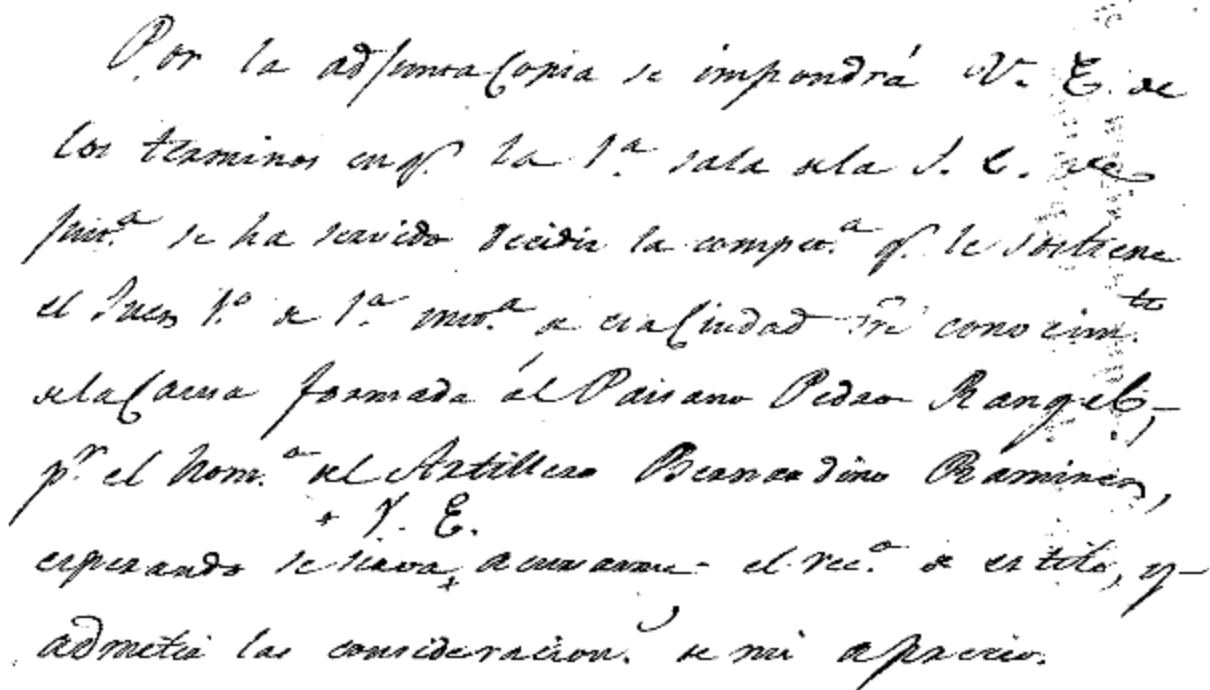 Por la adjunta Copia se impondrá V. E. de
los terminos en q.e la 1.a sala de la S. C. de
just.a se ha servido decidir la compet.a q.e le sostiene
el Juez 1.o de 1.a inst.a de esa Ciudad sre conocim.to
de la Causa formada ál Paisano Pedro Rangel,
p.r el hom.o del Artillero Bernardino Ramires,
esperando se sirva V. E. acusarme el rec.o de estilo, y
admitir las consideracion.s de mi aprecio.